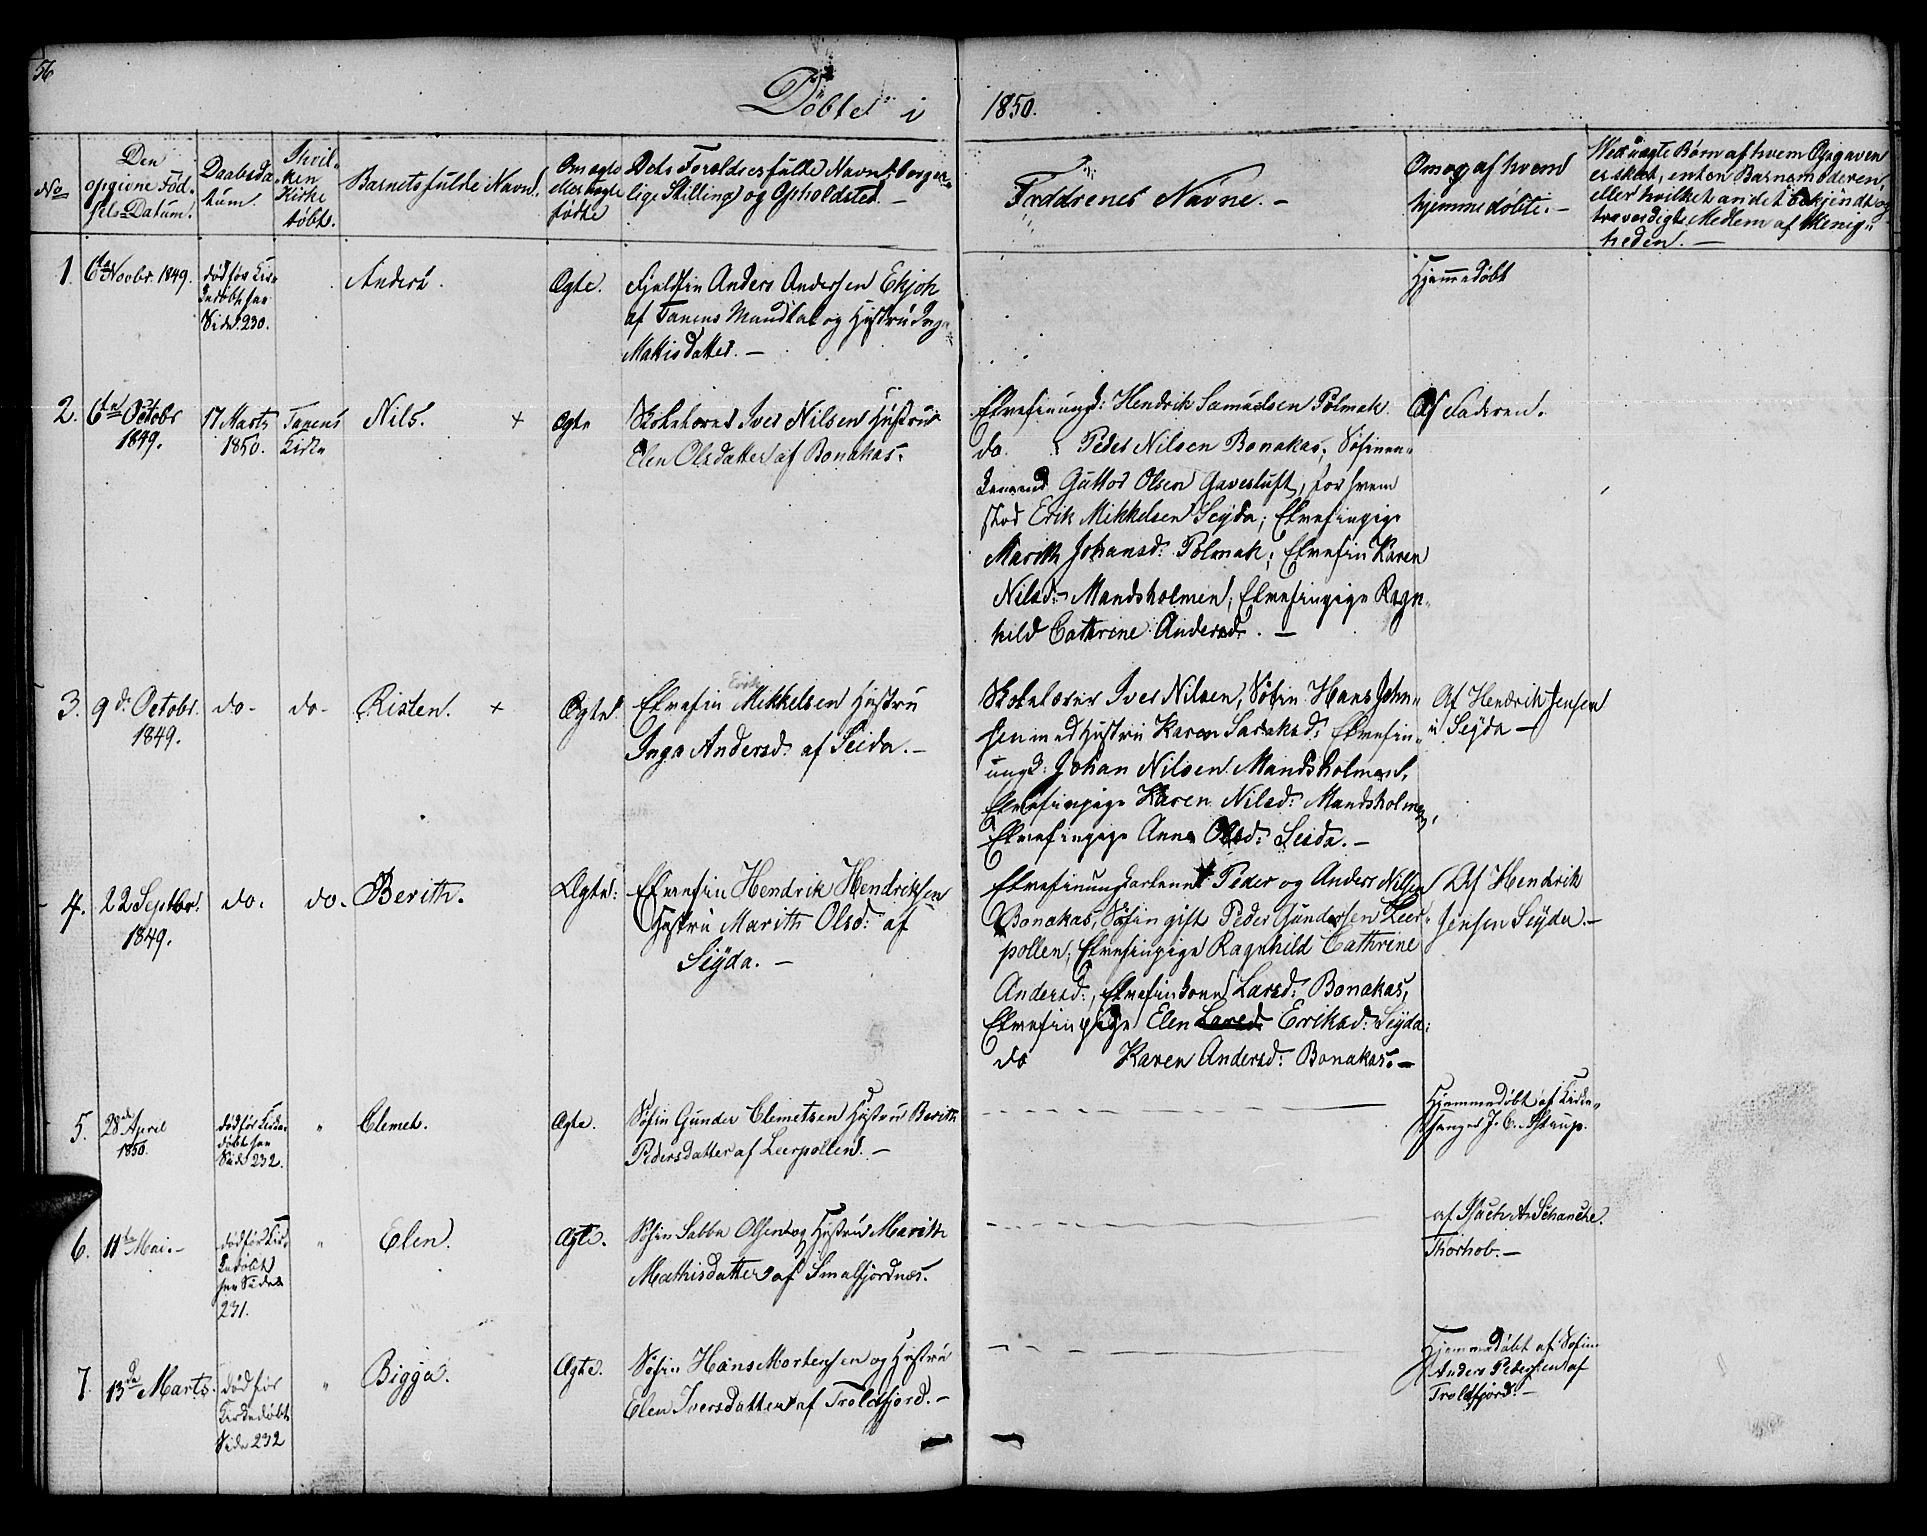 56
Döbte i 1850.
No
Den opgivne Fød-
sels-Datum.
Daabsda-
tum.
I hvil-
ken
Kirke
døbt.
Barnets fulde Navn.
Om ægte
eller uægte
fødte
Dets Forældres fulde Navn, borger-
lige Stilling og Opholdsted. -
Faddrenes Navne. -
Om og af hvem
hjemmedøbte. -
Ved uægte Børn af hvem Opgaven
er skeet, enten Barnemoderen,
eller hvilket andet bekjendt og
troværdigt Medlem af Menig-
heden. -
1. 6te Novbr 1849.
død før Kir-
kedøbt see
Side 230.
Anders.
Ægte.
Fjeldfin Anders Andersen Ekjoh
af Tanens Manntal og Hustru Inga
Mattisdatter. -
Hjemmedøbt
2. 6te Octobr
1849.
17 Marts
1850.
Tanens
Kirke
Nils. +
Ægte
Skolelærer Iver Nilsen Hustru
Elen Olsdatter af Bonakas.
Elvefinungd: Hendrik Samuelsen Polmak.
do. Peder Nilsen Bonakas, Søfinen-
Guttor Olsen Gavesluft, for hvem
stod Erik Mikkelsen Seyda; Elvefinpige
Marith Johansd: Polmak; Elvefin Karen
Nilsd: Mandsholmen; Elvefinpige Ragn-
hild Cathrine Andersd. -
Af Faderen.
3. 9de Octobr.
1849.
do-
do-
Risten. +
Ægte.
Elvefin Erik Mikkelsen Hustru
Inga Andersd: af Seida. -
Skolelærer Iver Nilsen, Søfin Hans John-
sen med Hustru Karen Saraksd: Elvefin-
ungd: Johan Nilsen Mandsholmen.
Elvefinpige Karen Nilsd: Mandsholmen,
Elvefinpige Anne Olsd: Seida. -
Af Hendrik Jensen
i Seyda -
4. 22 Septbr.
1849.
do.
do.
Berith.
Ægte:
Elvefin Hendrik Hendriksen
Hustru Marith Olsd: af
Seyda. -
Elvefinungkarlene Peder og Anders Nilsen
Bonakas, Søfin gift Peder Gundersen Leer-
pollen; Elvefinpige Ragnhild Cathrine
Andersd:, Elvefinkone Larsd: Bonakas,
Elvefinpige Elen Larsd Eriksd: Seyda:
do Karen Andersd: Bonakas. -
Af Hendrik
Jensen Seyda. -
5. 28de April
1850.
død før Kirke-
døbt see
Side 232.
"
Clemet.
Ægte.
Søfin Gunder Clemetsen Hustru Berith
Pedersdatter af Leerpollen. -
Hjemmedøbt af Kirke-
sanger J. C. Astrup.
6. 11te Mai. -
død før Kir-
kedøbt
see Side
231.
"
Elen.
Ægte.
Søfin Sabba Olsen og Hustru Marith
Mathisdatter af Smalfjordnæs.
af Isach A. Schancke.
Thorhob. -
7. 13de Marts.
død før
Kirkedøbt
Side 232
"
Bigga.
Ægte.
Søfin Hans Mortensen og Hustru
Elen Iversdatter af Troldfjord. -
Hjemmedøbt af Søfin
Anders Pedersen af
Troldfjord. -